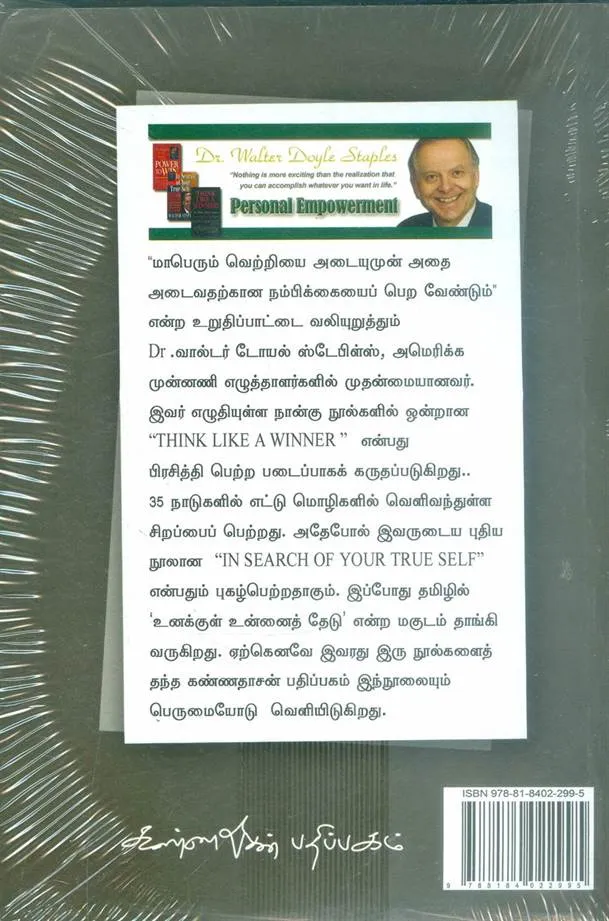 Dr. Walter Doyle Staples
"Nothing is more exciting than the realization that
you can accomplish whatever you want in life."
Personal Empowerment
POWER
TO WIN
THINK
LIKE A
WINNER
"மாபெரும் வெற்றியை அடையுமுன் அதை
அடைவதற்கான நம்பிக்கையைப் பெற வேண்டும்"
என்ற உறுதிப்பாட்டை வலியுறுத்தும்
Dr .வால்டர் டோயல் ஸ்டேபிள்ஸ், அமெரிக்க
முன்னணி எழுத்தாளர்களில் முதன்மையானவர்.
இவர் எழுதியுள்ள நான்கு நூல்களில் ஒன்றான
"THINK LIKE A WINNER " என்பது
பிரசித்தி பெற்ற படைப்பாகக் கருதப்படுகிறது..
35 நாடுகளில் எட்டு மொழிகளில் வெளிவந்துள்ள
சிறப்பைப் பெற்றது. அதேபோல் இவருடைய புதிய
நூலான "IN SEARCH OF YOUR TRUE SELF"
என்பதும் புகழ்பெற்றதாகும். இப்போது தமிழில்
'உனக்குள் உன்னைத் தேடு' என்ற மகுடம் தாங்கி
வருகிறது. ஏற்கெனவே இவரது இரு நூல்களைத்
தந்த கண்ணதாசன் பதிப்பகம் இந்நூலையும்
பெருமையோடு வெளியிடுகிறது.
ISBN 978-81-8402-299-5
9 788184 022995
கண்ணதாசன் பதிப்பகம்